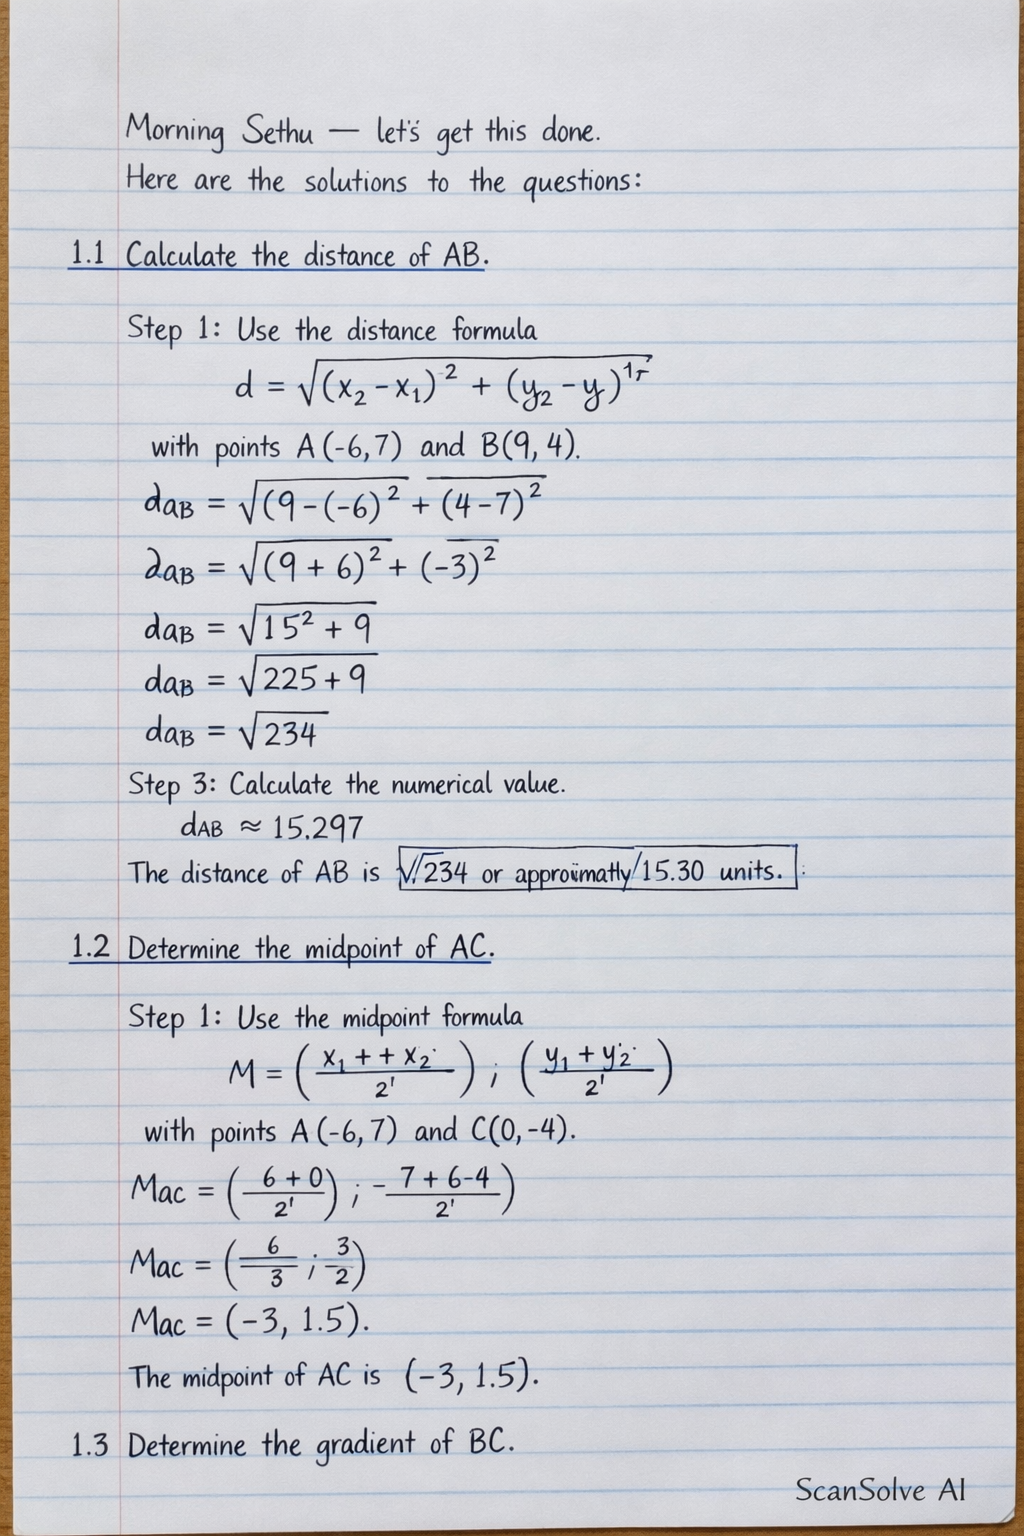 Morning Sethu — let's get this done.
Here are the solutions to the questions:
1.1 Calculate the distance of AB.
Step 1: Use the distance formula
d = √(x₂ - x₁)² + (y₂ - y)
with points A(-6, 7) and B(9, 4).
daB = √(9 - (-6)² + (4 - 7)²
∂aB = √(9 + 6)² + (-3)²
daB = √15² + 9
daB = √225 + 9
daB = √234
Step 3: Calculate the numerical value.
dAB ≈ 15.297
The distance of AB is √234 or /15.30 units.
1.2 Determine the midpoint of AC.
Step 1: Use the midpoint formula
M = (x₁ + + x₂ / 2') ; (y₁ + y₂ / 2')
with points A(-6, 7) and C(0, -4).
Mac = (6 + 0 / 2') ; - 7 + 6 - 4 / 2')
Mac = (6 / 3 ; 3 / 2)
Mac = (-3, 1.5).
The midpoint of AC is (-3, 1.5).
1.3 Determine the gradient of BC.
ScanSolve AI